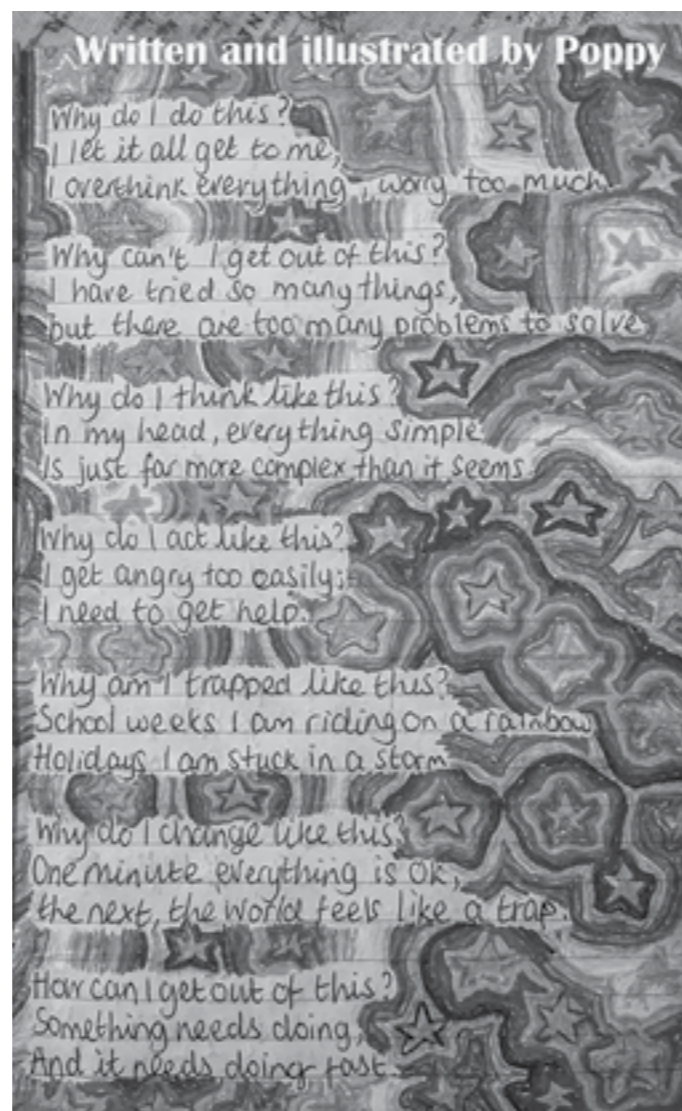 Written and illustrated by Poppy
Why do I do this?
I let it all get to me,
I overthink everything, worry too much.
Why can't I get out of this?
I have tried so many things,
but there are too many problems to solve.
Why do I think like this?
In my head, everything simple
Is just far more complex than it seems
Why do I act like this?
I get angry too easily;
I need to get help.
Why am I trapped like this?
School weeks I am riding on a rainbow
Holidays I am stuck in a storm
Why do I change like this?
One minute everything is ok,
the next, the world feels like a trap.
How can I get out of this?
Something needs doing,
And it needs doing fast.